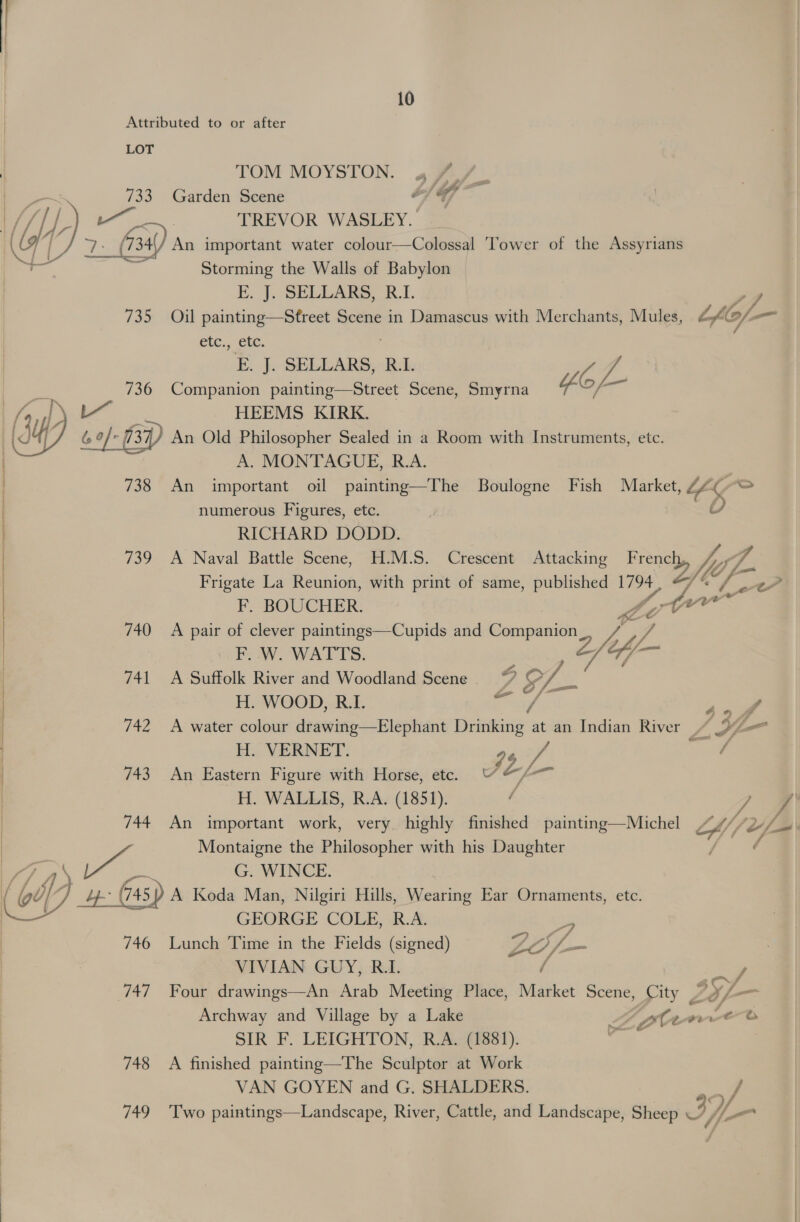 10
Attributed to or after
LOT
TOM MOYSTON.
733 Garden Scene
TREVOR WASLEY.
7. 734 An important water colour—Colossal Tower of the Assyrians
Storming the Walls of Babylon
E. J. SELLARS, R.I.
735 Oil painting—Street Scene in Damascus with Merchants, Mules,
etc., etc.
E. J. SELLARS, R.I.
736 Companion painting—Street Scene, Smyrna
HEEMS KIRK.
60/- 737 An Old Philosopher Sealed in a Room with Instruments, etc.
A. MONTAGUE, R.A.
738 An important oil painting—The Boulogne Fish Market,
numerous Figures, etc.
RICHARD DODD.
739 A Naval Battle Scene, H.M.S. Crescent Attacking French,
Frigate La Reunion, with print of same, published 1794,
F. BOUCHER.
740 A pair of clever paintings—Cupids and Companion
F. W. WATTS.
741 A Suffolk River and Woodland Scene
H. WOOD, R.I.
742 A water colour drawing—Elephant Drinking at an Indian River
H. VERNET.
743 An Eastern Figure with Horse, etc.
H. WALLIS, R.A. (1851).
744 An important work, very highly finished painting—Michel
Montaigne the Philosopher with his Daughter
G. WINCE.
745 A Koda Man, Nilgiri Hills, Wearing Ear Ornaments, etc.
GEORGE COLE, R.A.
746 Lunch Time in the Fields (signed) 20/-
VIVIAN GUY, R.I.
747 Four drawings—An Arab Meeting Place, Market Scene, City
Archway and Village by a Lake
SIR F. LEIGHTON, R.A. (1881).
748 A finished painting—The Sculptor at Work
VAN GOYEN and G. SHALDERS.
749 Two paintings—Landscape, River, Cattle, and Landscape, Sheep